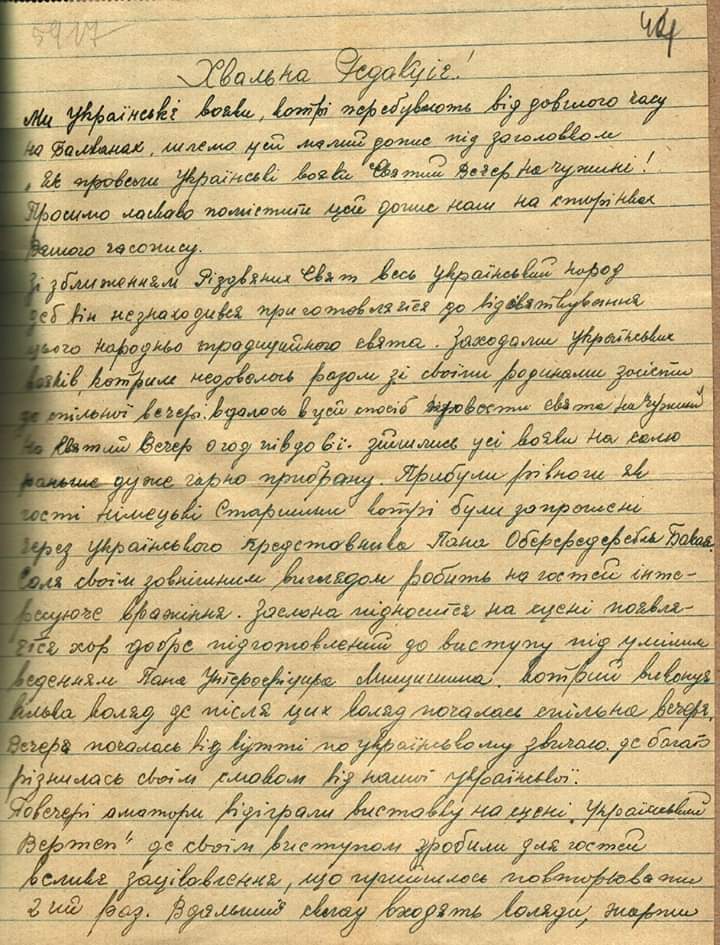 5917
44
Хвальна Редакціє!
Ми Українські вояки, котрі перебувають від довшого часу
на Балканах, шлемо цей малий допис під заголовком
„Як провели Українські вояки Святий Вечер на чужині!
Просимо ласкаво помістити цей допис нам на сторінках
Вашого часопису.
Зі зближенням Різдвяних Свят весь український народ
деб він незнаходився приготовляється до відсвяткування
цього народньо традиційного свята. Заходами Українських
вояків, котрим недовелось разом зі своїми родинами засісти
до спільної вечері, вдалось в цей спосіб провести свята на чужині
На Святий Вечер о год півдові. зійшлись усі вояки на салю
раньше дуже гарно прибрану. Прибули рівнож як
гості Німецькі Старшини котрі були запрошені
через українського представника Пана Оберфедефебля Бакая.
Саля своїм зовнішним виглядом робить на гостей інте-
ресуюче вражіння. Заслона підноситься на сцені появля-
ється хор добре підготовлений до виступу під умілим
веденням Пана Унтерофіцира Мицишина. котрий виконує
кілька коляд де після цих коляд почалась спільна вечеря.
Вечеря почалась від кутті по українському звичаю. де багато
різнилась своїм смаком від нашої української.
Повечері аматори відіграли виставку на сцені „Український
Вертеп" де своїм виступом зробили для гостей
велике зацікавлення, що прийшлось повторювати
2 ий раз. В дальший склад входять коляди, жарти